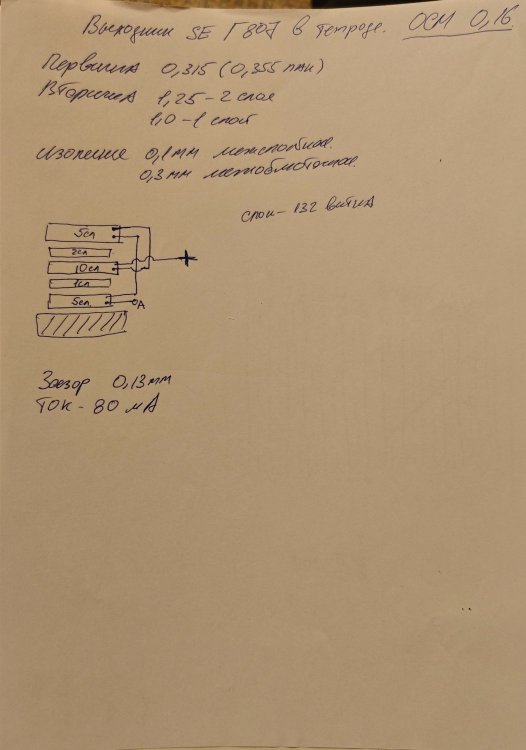 Выходник SE Г807 в тетроде. ОСМ 0,16
Первичка 0,315 (0,355 лак)
Вторичка 1,25 - 2 слоя
1,0 - 1 слой
Изоляция 0,1 мм межслойная.
0,3 мм межобмоточная.
слои - 132 витка
5сл
2сл
10сл
1сл
5сл.
+
А
Зазор 0,13 мм
ТОК - 80 мА